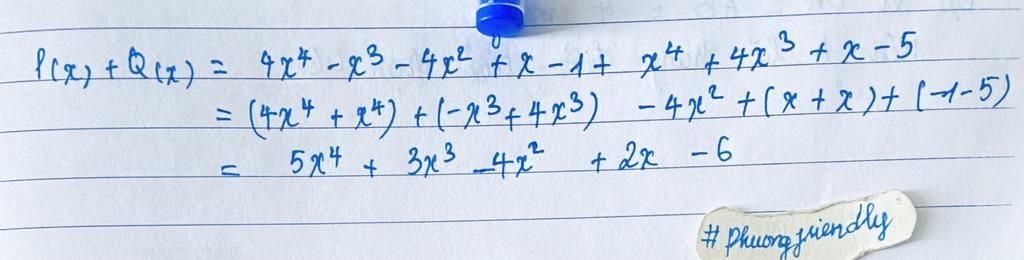 P(x) + Q(x) = 4x⁴ - x³ - 4x² + x - 1 + x⁴ + 4x³ + x - 5
= (4x⁴ + x⁴) + (-x³ + 4x³) - 4x² + (x + x) + (-1-5)
= 5x⁴ + 3x³ - 4x² + 2x - 6
# Phuongfriendly